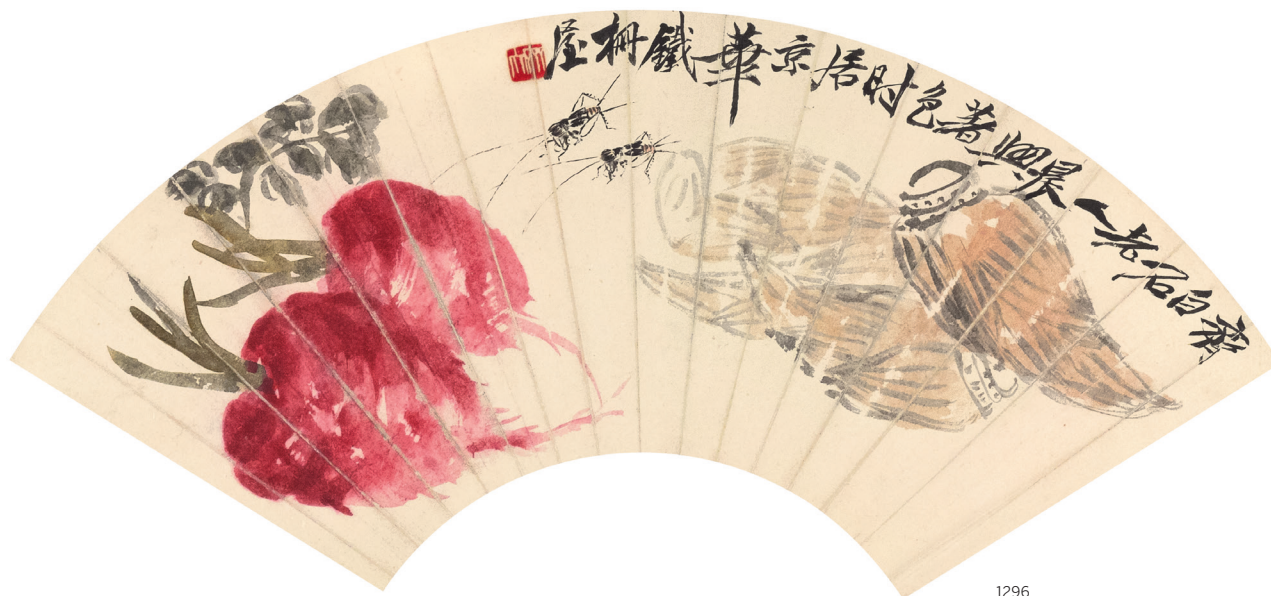 齊白石老人晨興著色时居京華鐵柵屋
1296